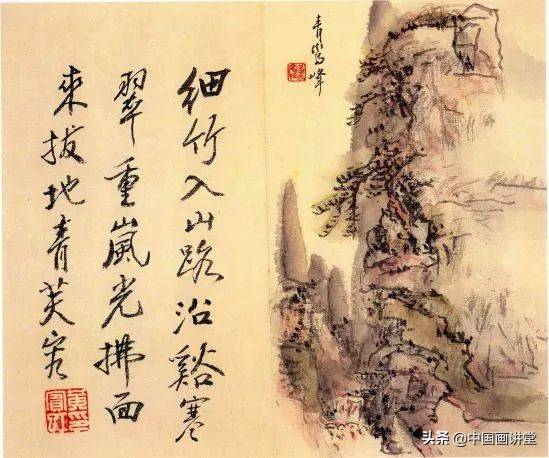 青鸞峰
細竹入山路沿谿寒
翠重嵐光拂面
來拔地青芙容
头条 @中国画讲堂